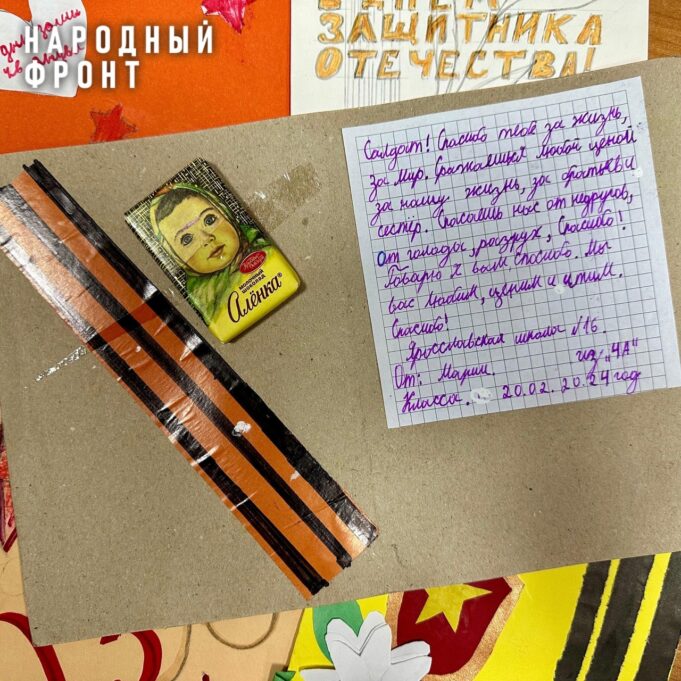 НАРОДНЫЙ
ФРОНТ
С ДНЁМ
ЗАЩИТНИКА
ОТЕЧЕСТВА!
Салдат! Спасибо тебе за жизнь,
за мир. Сражаишся любой ценой
за нашу жизнь, за братьев и
сестёр. Спасаешь нас от недругов,
От голода, разрух, Спасибо!
Говорю я вам спасибо. Мы
вас любим, ценим и чтим.
Спасибо!
Яросславская школа №16.
От: Марии. из "4А"
Класса. 20.02.2024 год
Красный
Октябрь
МОЛОЧНЫЙ
ШОКОЛАД
Алёнка®